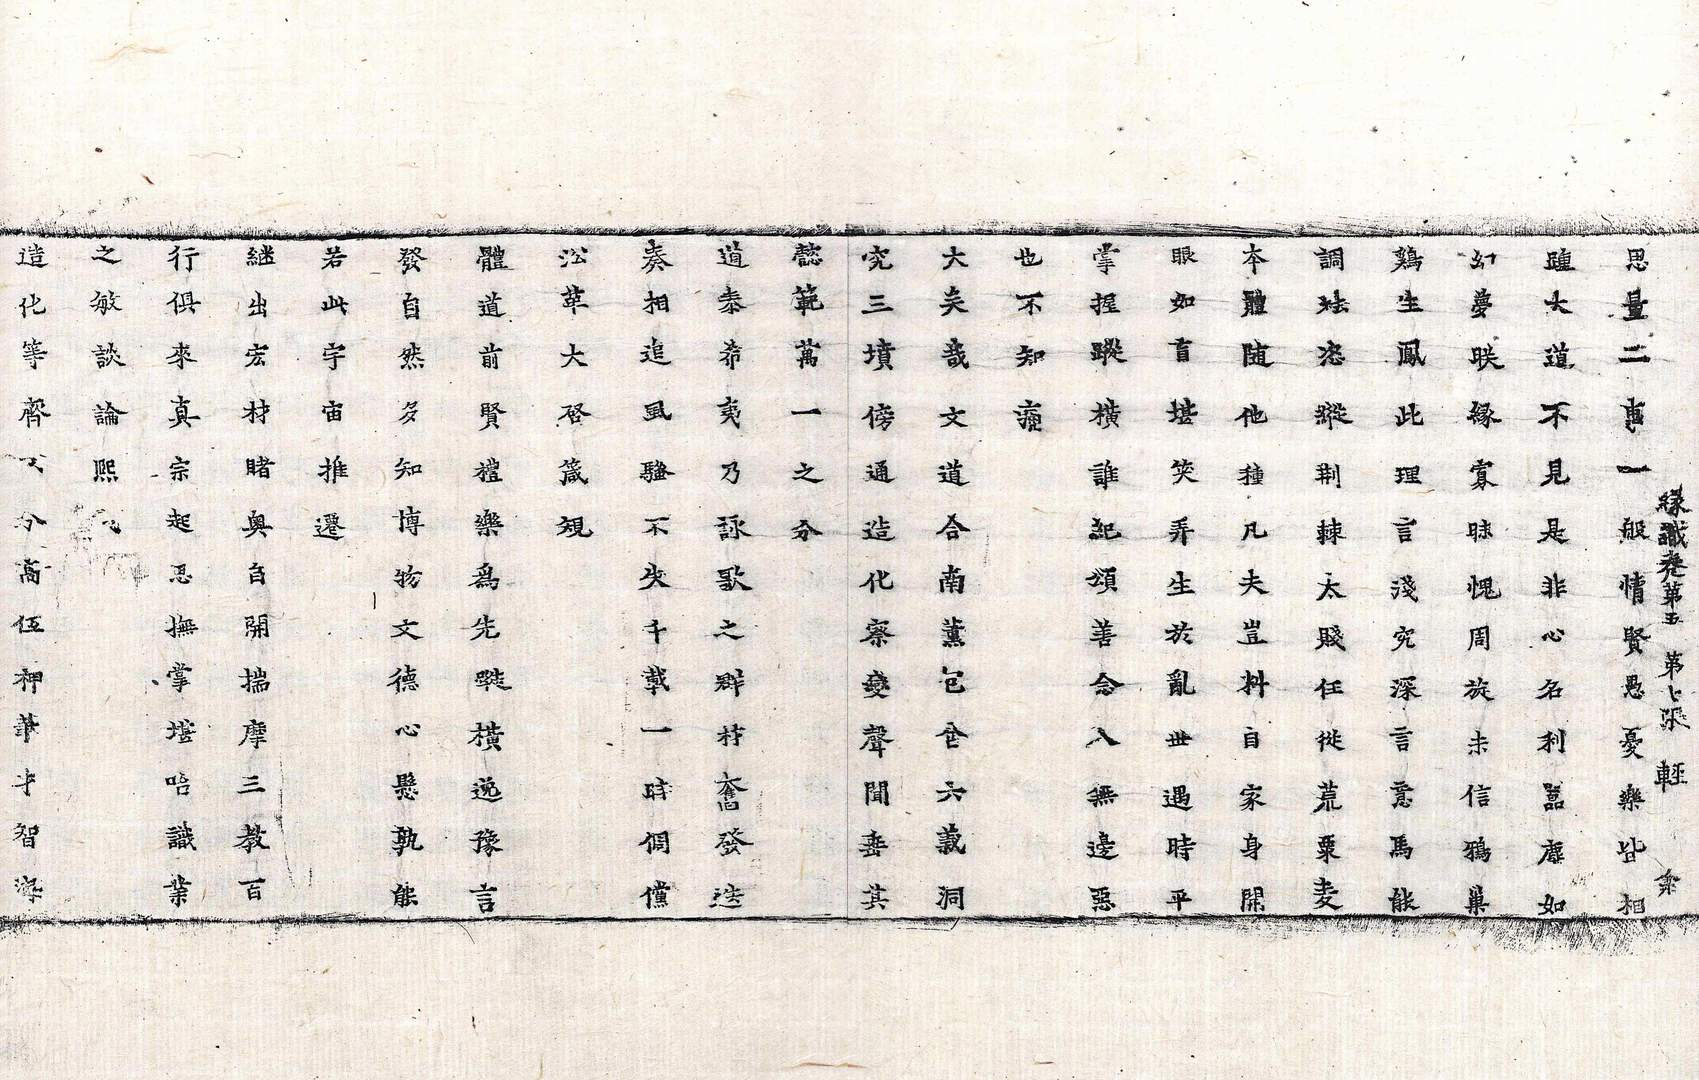 思量二事一般情賢愚憂樂皆相
緣識卷第五　第七張　輕
踵大道不見是非心名利嚚虛如
幻夢眹緣寡昧愧周旋未信鴉巢
鷄生鳳此理言淺究深言意馬能
調恣縱荆棘太賤任從荒粟麦
本體随他種凡夫豈料自家身開
眼如盲堪笑弄生於亂世遇時平
掌握蹤橫誰紀頌善念入無邊惡
也不知
大矣哉文道合南薰包含六義洞
究三墳傍通造化察變聲聞垂其
懿範萬一之分
道泰希夷乃詠歌之群材奮發造
奏相追風騷不失千載一時倜儻
草大啓箴規
體道前賢禮樂為先橫逸豫言
發自然多知博物文德心懸孰能
若此宇宙推遷
継出宏材睹奥自開揣摩三教百
行俱來真宗起思撫掌堪咍識業
之敏談論熙
造化等齊分高低神筆才智海